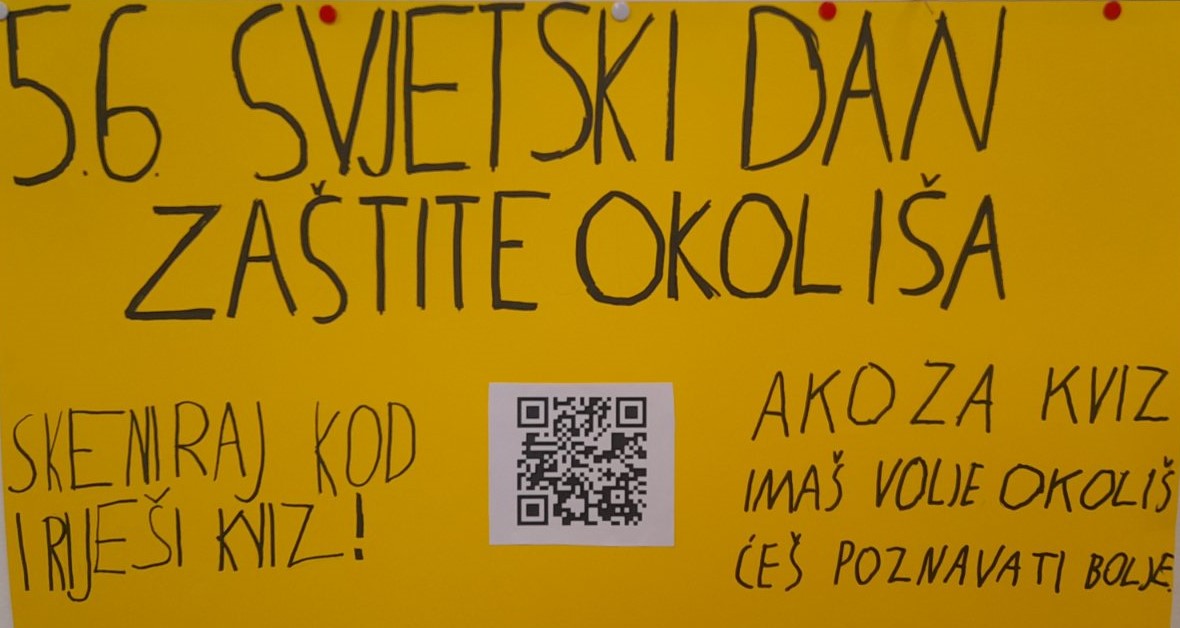 5.6. SVJETSKI DAN
ZAŠTITE OKOLIŠA
SKENIRAJ KOD
I RIJEŠI KVIZ!
AKO ZA KVIZ
IMAŠ VOLJE OKOLIŠ
ĆEŠ POZNAVATI BOLJE.